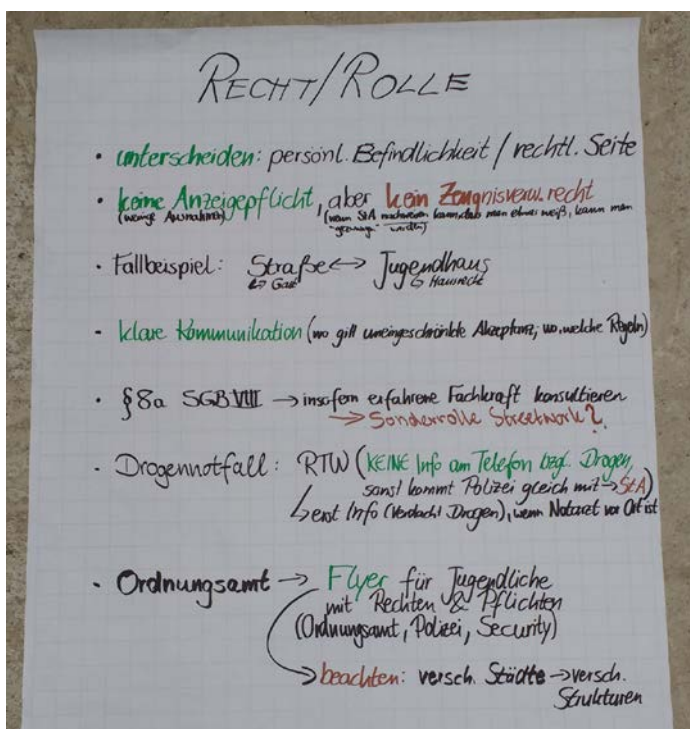 RECHT/ROLLE
· unterscheiden: persönl. Befindlichkeit / rechtl. Seite
· keine Anzeigepflicht, aber kein Zeugnisverw.recht
(wenige Ausnahmen) (wenn StA nachweisen kann, dass man etwas weiß, kann man
"gezwungen" werden)
· Fallbeispiel: Straße ↔ Jugendhaus
↳ Gast ↳ Hausrecht
· klare Kommunikation (wo gilt uneingeschränkte Akzeptanz; wo welche Regeln)
· §8a SGB VIII → insofern erfahrene Fachkraft konsultieren
→ Sonderrolle Streetwork?
· Drogennotfall: RTW (KEINE Info am Telefon bzgl. Drogen,
sonst kommt Polizei gleich mit → StA)
↳ erst Info (Verdacht Drogen), wenn Notarzt vor Ort ist
· Ordnungsamt → Flyer für Jugendliche
mit Rechten & Pflichten
(Ordnungsamt, Polizei, Security)
→ beachten: versch. Städte → versch.
Strukturen